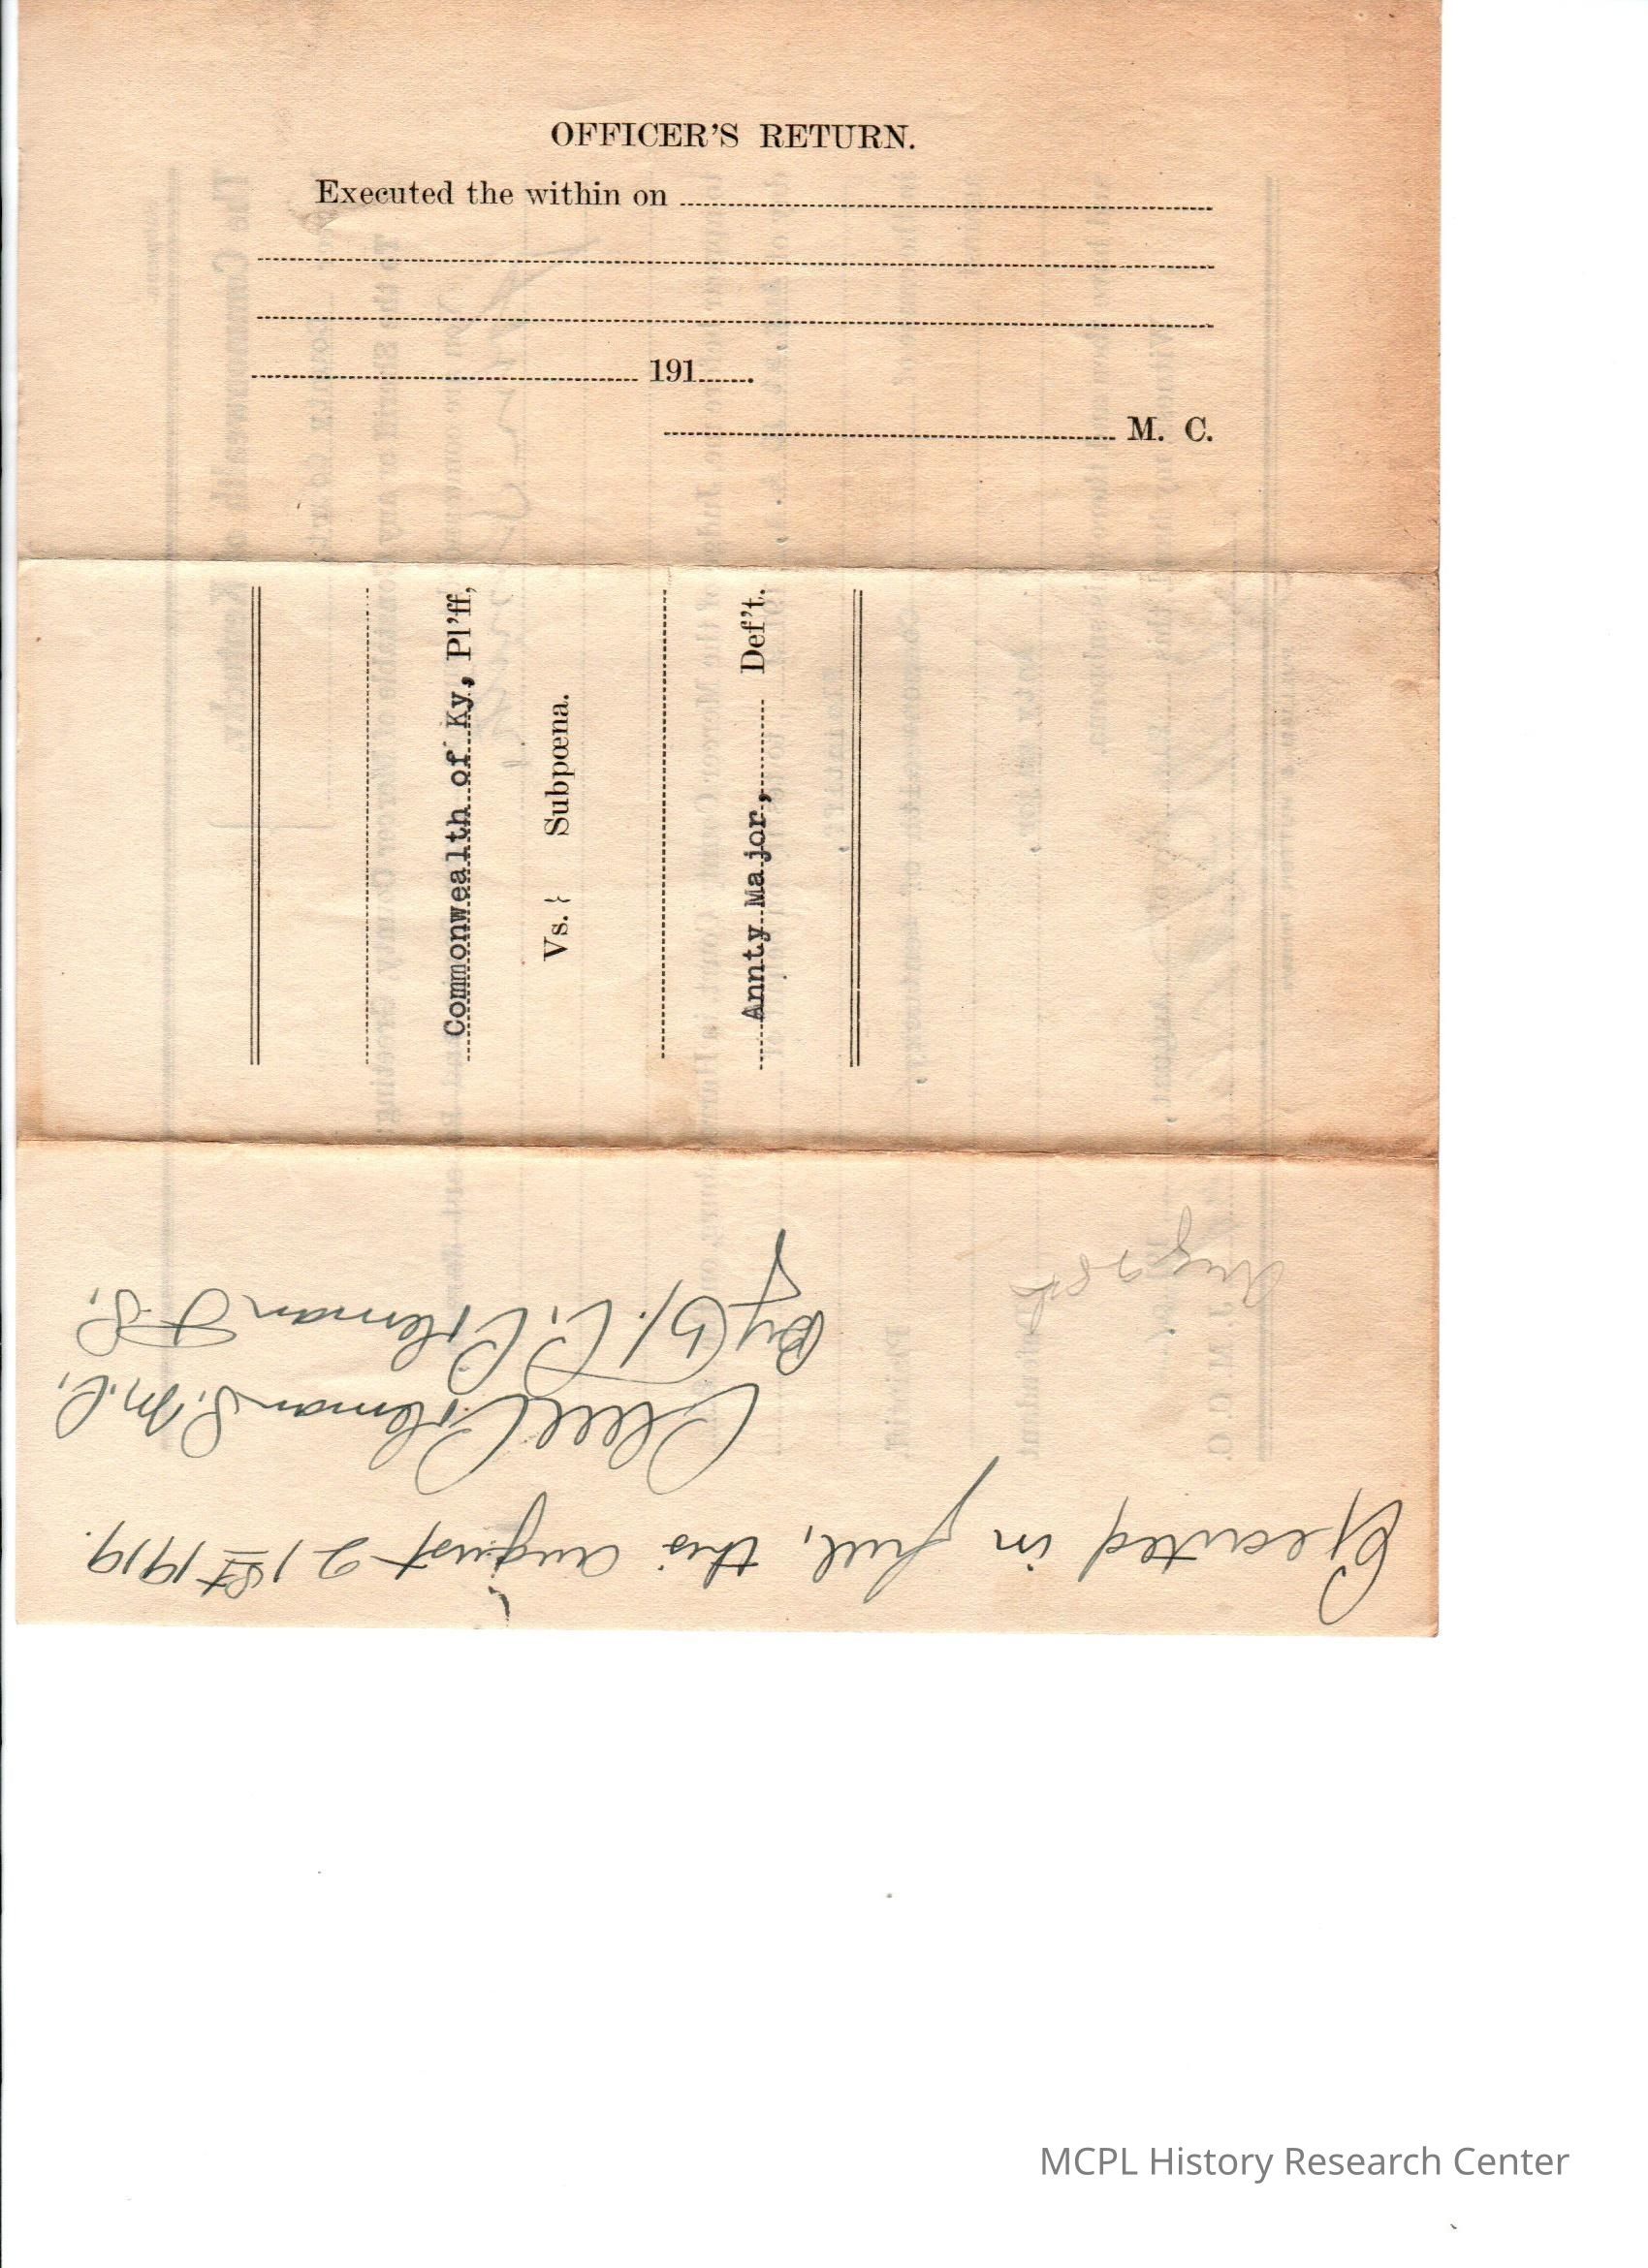 OFFICER'S RETURN.
Executed the within on
191
M. C.
Commonwealth of Ky, Pl'ff,
Vs. } Subpœna.
Annty Major, Def't.
Executed in full, this August 21st 1919.
Coleman S. M. C.
By W. C. Coleman D. S.
Aug 28th
MCPL History Research Center